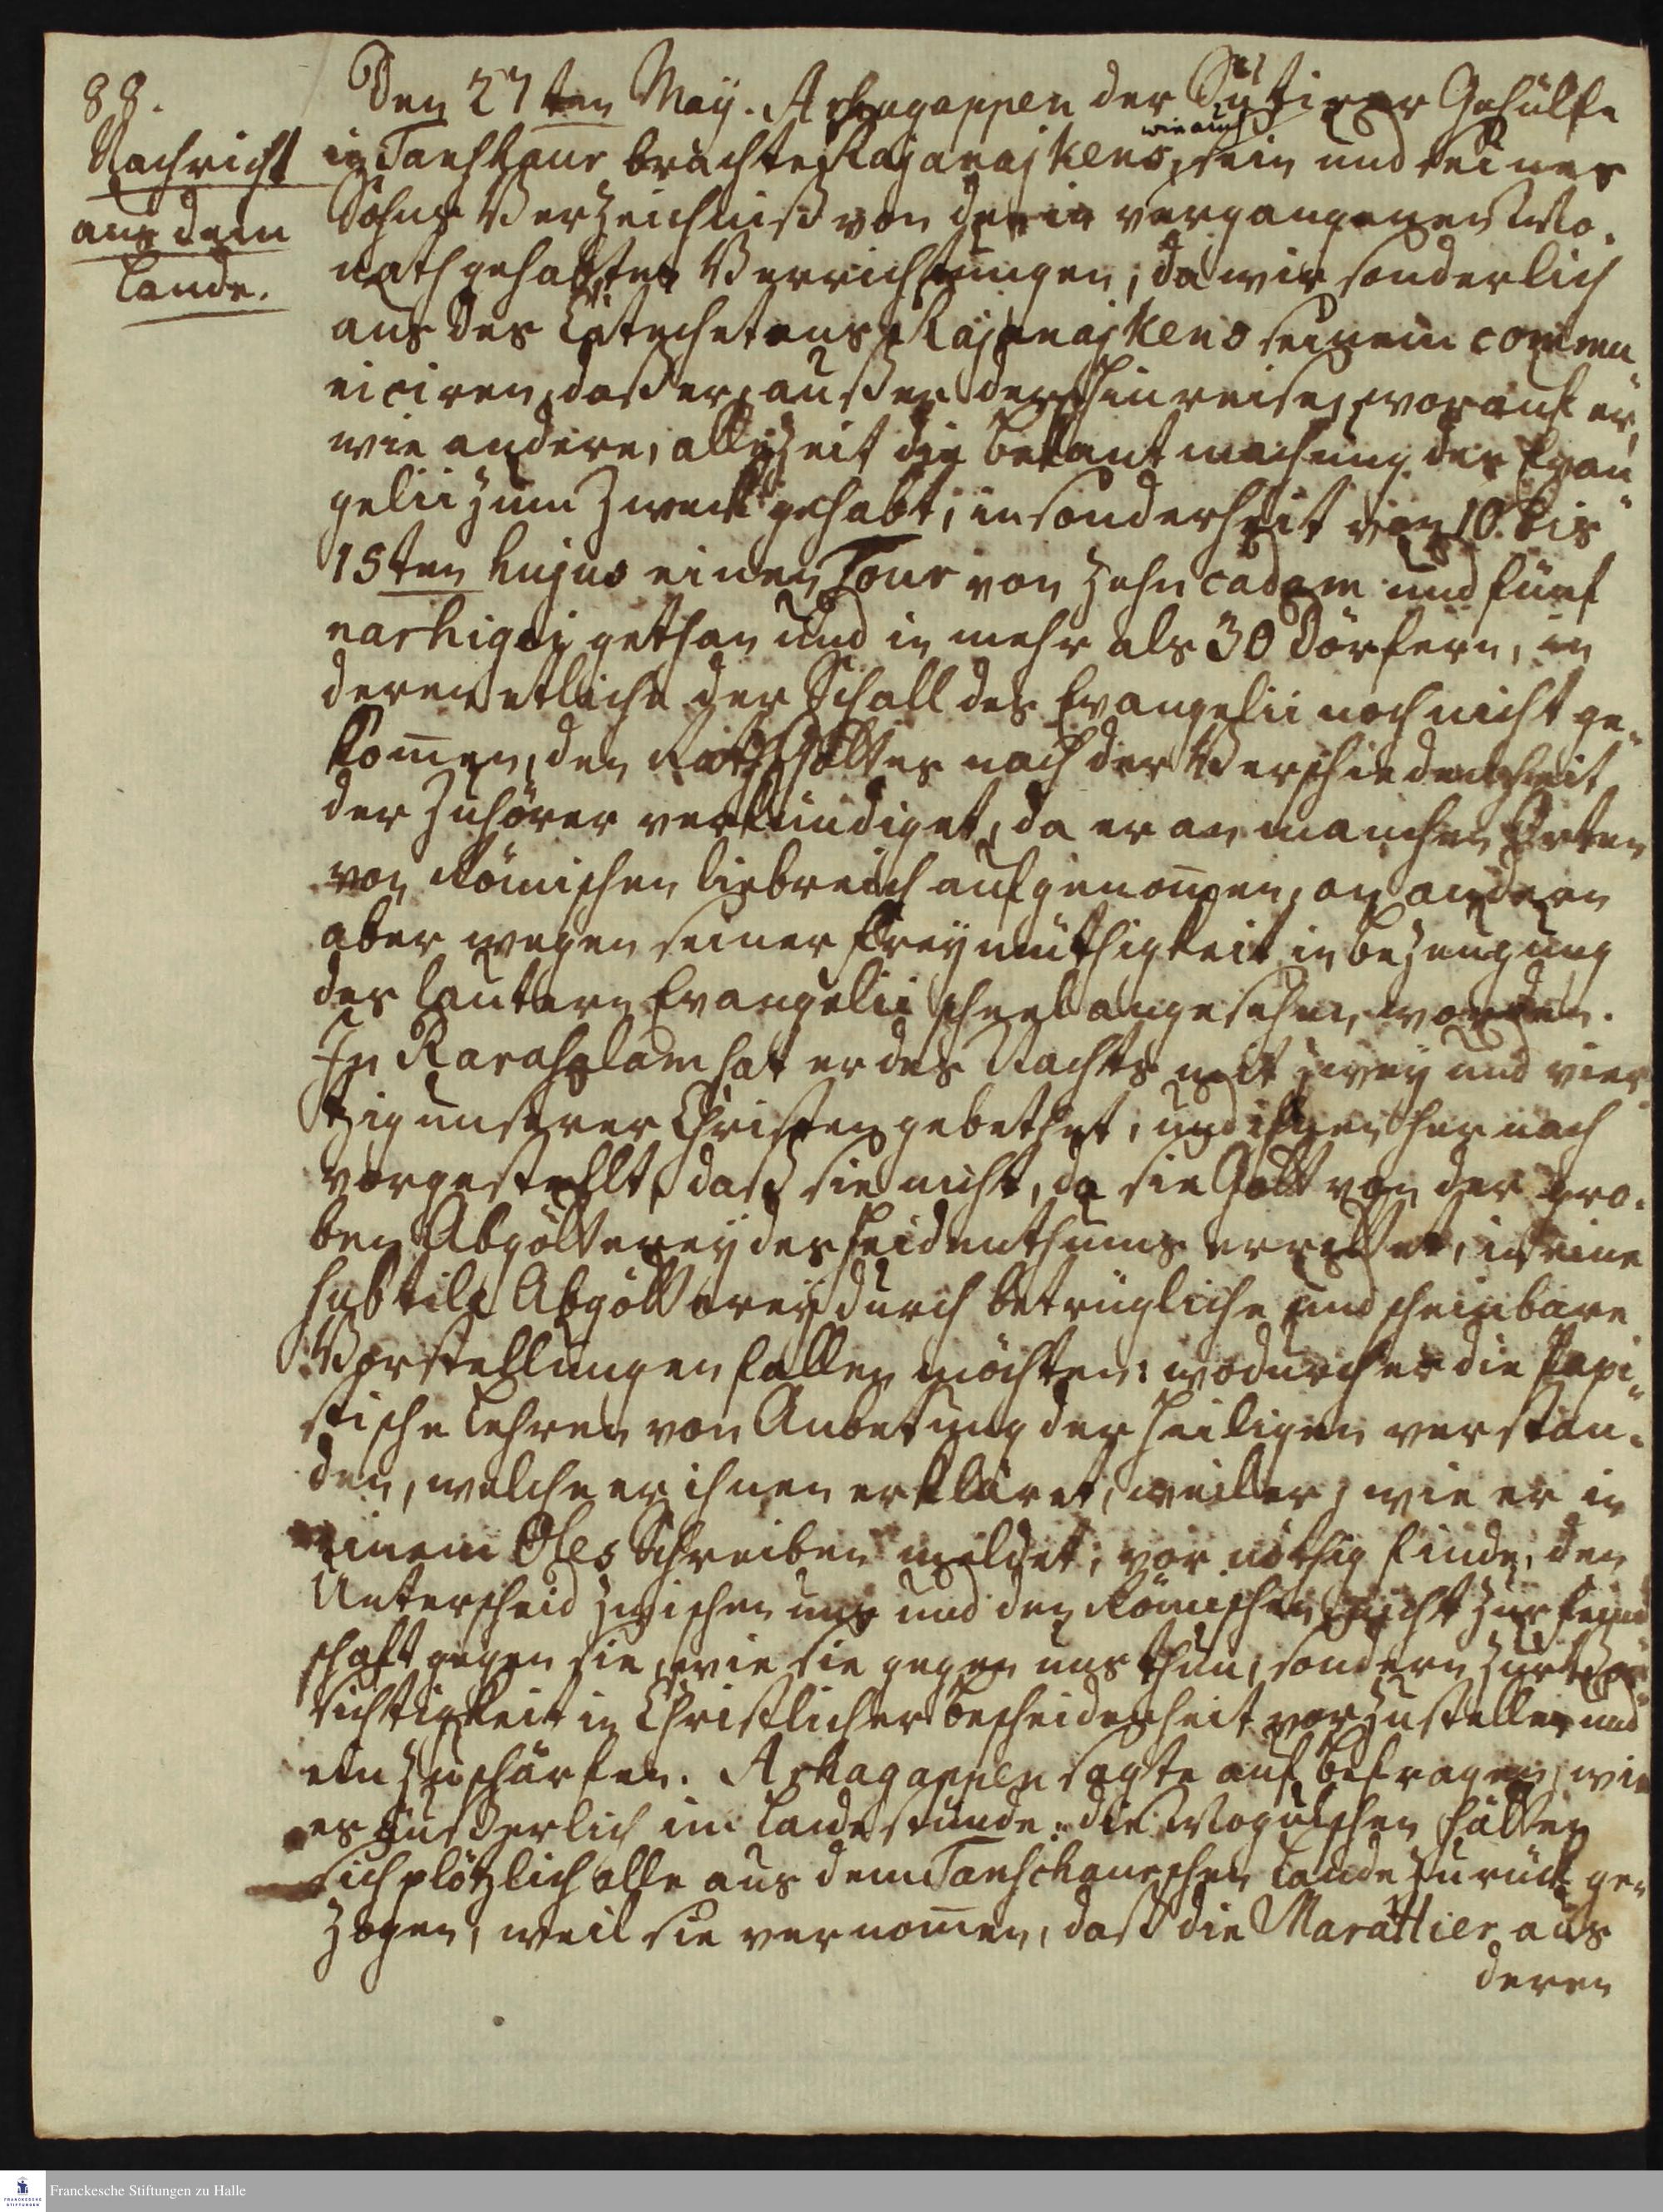 88.
Nachricht
aus dem
Lande.
Den 27ten Maij. Arhagappen der Sutirer Gehülfe
in Tanshaur brachte Rajanajkens, wie auch sein und seines
Sohns Verzeichniß von derin vergangenen Mo-
nath gehabten Verrichtungen, da wir sonderlich
aus des Catechetens Rajanajkens seinem commu-
niciren, daß er, außer der Hinreise, worauf er,
wie andere, allezeit die bekant machung des Evan-
gelii zum Zweck gehabt, insonderheit von 10. bis
15ten hujus einen Tour von zehn cadam und fünf
narhigei gethan und in mehr als 30 Dörfern, in
deren etliche der Schall des Evangelii noch nicht ge-
kom̄en, den Rath Gottes nach der Verschiedenheit
der Zuhörer verkündiget, da er an manchen Orten
von Römischen liebreich aufgenom̄en, an andern
aber wegen seiner Freymüthigkeit in bezeugung
des lautern Evangelii scheel angesehen worden.
In Rarahalam hat er des Nachts mit zwey und vier-
tzig unserer Christen gebethet, und ihnen hernach
vorgestellt, daß sie nicht, da sie Gott von der gro-
ben Abgötterey des Heidenthums errettet, in eine
subtile Abgötterey durch betrügliche und scheinbare
Vorstellungen fallen möchten: wodurch er die Papi-
stische Lehren von Anbetung der Heiligen verstan-
den, welche er ihnen erkläret, weil er, wie er in
einem Oles Schreiben meldet, vor nöthig finde, den
Unterscheid zwischen uns und den Römischen, nicht zur feind
schaft gegen sie, wie sie gegen uns thun, sondern zur Vor-
sichtigkeit in Christlicher bescheidenheit vorzustellen und
einzuschärfen. Arhagappen sagte auf befragen, wie
es äußerlich im Lande stünde: die Mogulschen hätten
sich plötzlich alle aus dem Tanschaurschen Lande zurück ge-
zogen, weil sie vernom̄en, daß die Marattier aus
deren
Franckesche Stiftungen zu Halle